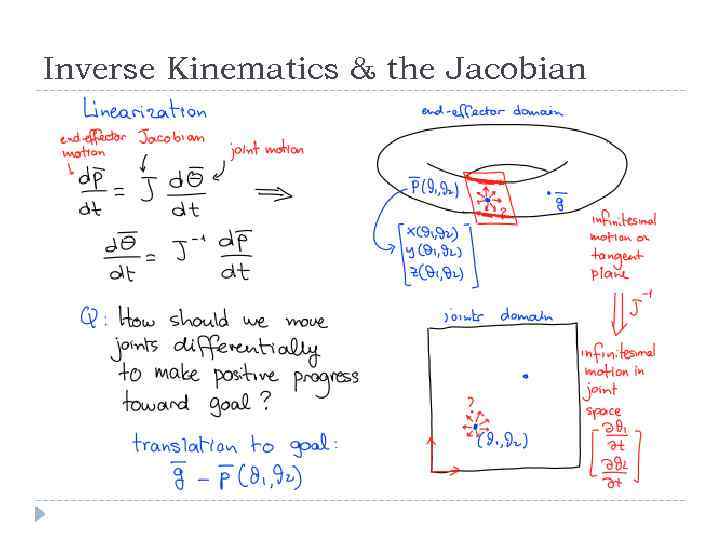 Inverse Kinematics & the Jacobian
Linearization
end-effector motion
Jacobian
joint motion
dp̅/dt = J dθ̅/dt ⟹
dθ̅/dt = J⁻¹ dp̅/dt
Q: How should we move
joints differentially
to make positive progress
toward goal?
translation to goal:
g̅ - p̅(θ₁,θ₂)
end-effector domain
p̅(θ₁,θ₂)
?
g̅
[x(θ₁,θ₂)
y(θ₁,θ₂)
z(θ₁,θ₂)]
infinitesimal
motion on
tangent
plane
J⁻¹
joints domain
?
(θ₁,θ₂)
infinitesimal
motion in
joint
space
[∂θ₁/∂t
∂θ₂/∂t]